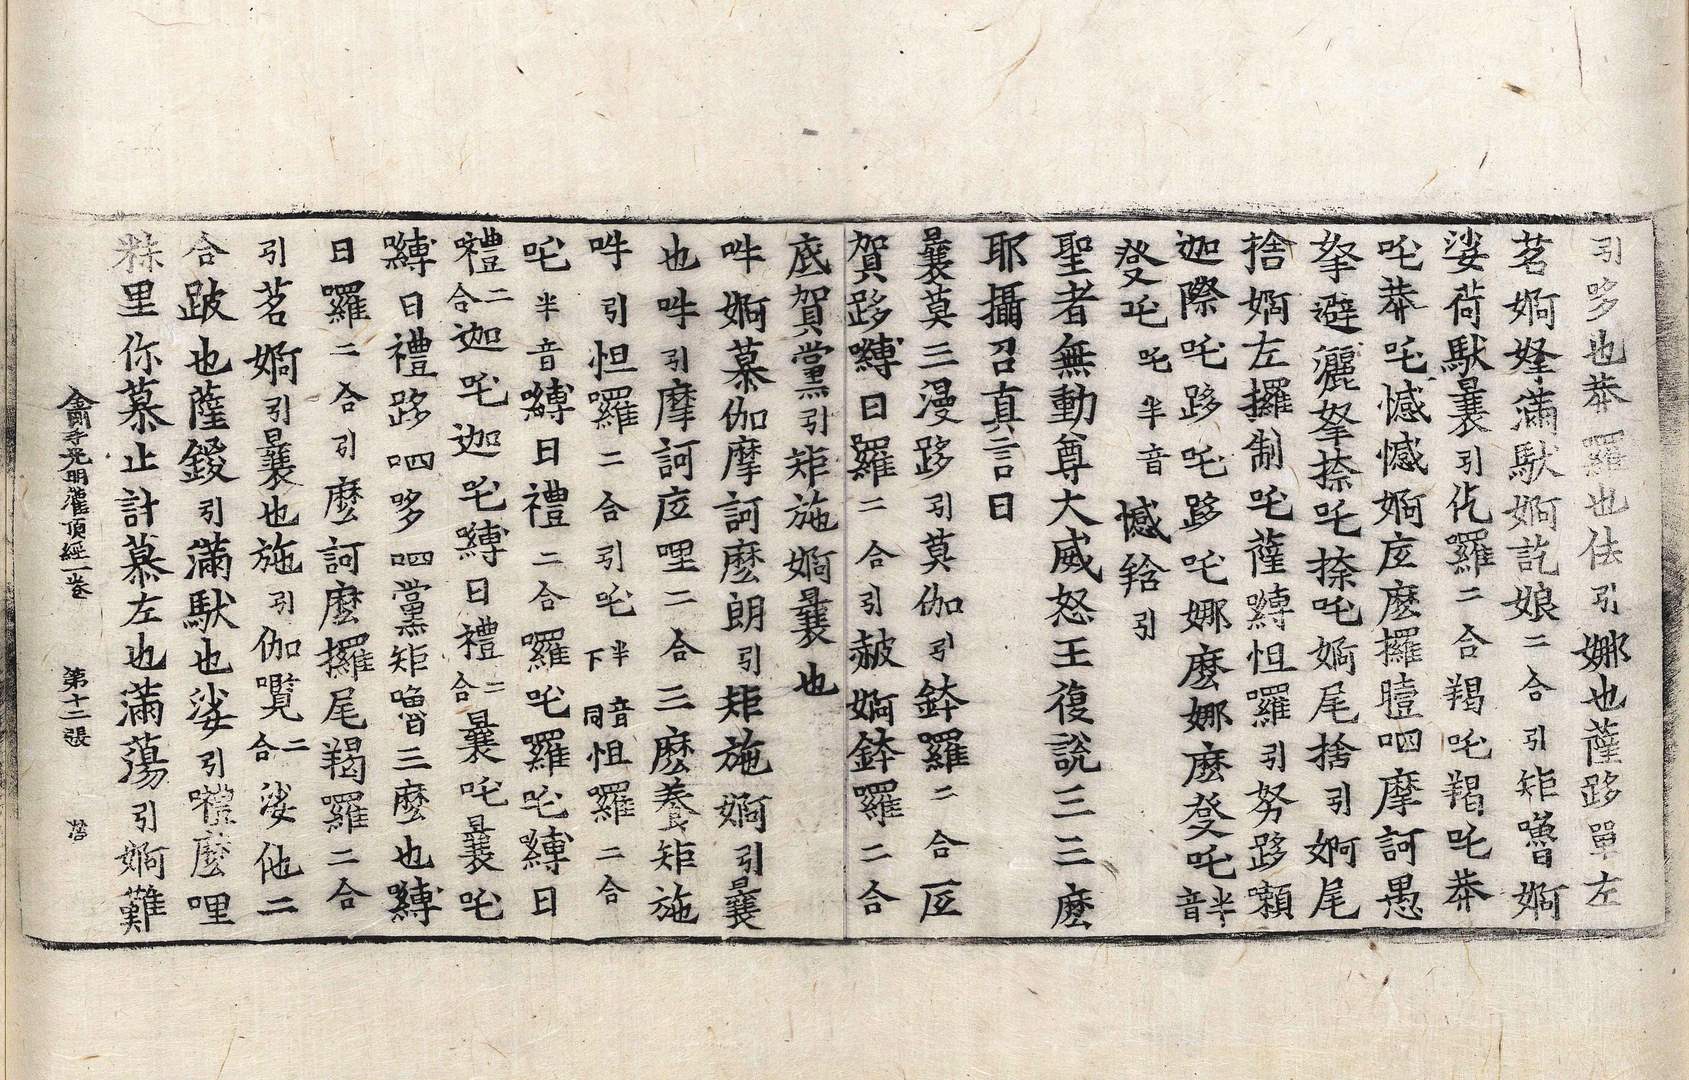 引哆也莽羅也佉引娜也薩跢單左
茗婀拏滿馱婀訖娘二合引矩嚕婀
娑荷馱曩引佉羅二合羯吒羯吒莽
吒莽吒憾憾婀庢麼攞曀呬摩訶愚
拏避灑拏捺吒捺吒婀尾捨引婀尾
捨婀左攞制吒薩嚩怛囉引努跢嚩
迦際吒跢吒跢吒娜麼娜麼癹吒半音
癹吒吒半音憾鎗引
聖者無動尊大威怒王復說三三麼
耶攝召真言曰
曩莫三漫跢引莫伽引鉢羅二合底
賀跢嚩日羅二合引赧婀鉢囉二合
底賀黨引矩施婀曩也
吽婀慕伽摩訶麼朗引矩施婀引曩
也吽引摩訶庢哩二合三麼養矩施
吽引怛囉二合引吒半音下同怛囉二合
吒半音嚩日禮二合囉吒羅吒嚩日
禮二合迦吒迦吒嚩日禮二合曩吒曩吒
嚩日禮跢呬哆呬黨矩嚕三麼也嚩
日囉二合引麼訶麼攞尾羯羅二合
引茗婀引曩也施引伽嚂二合娑他二
合跛也薩鍐引滿馱也娑引禮麼哩
秣里你慕止計慕左也滿蕩引婀難
金剛手光明灌頂經一卷 第十二張